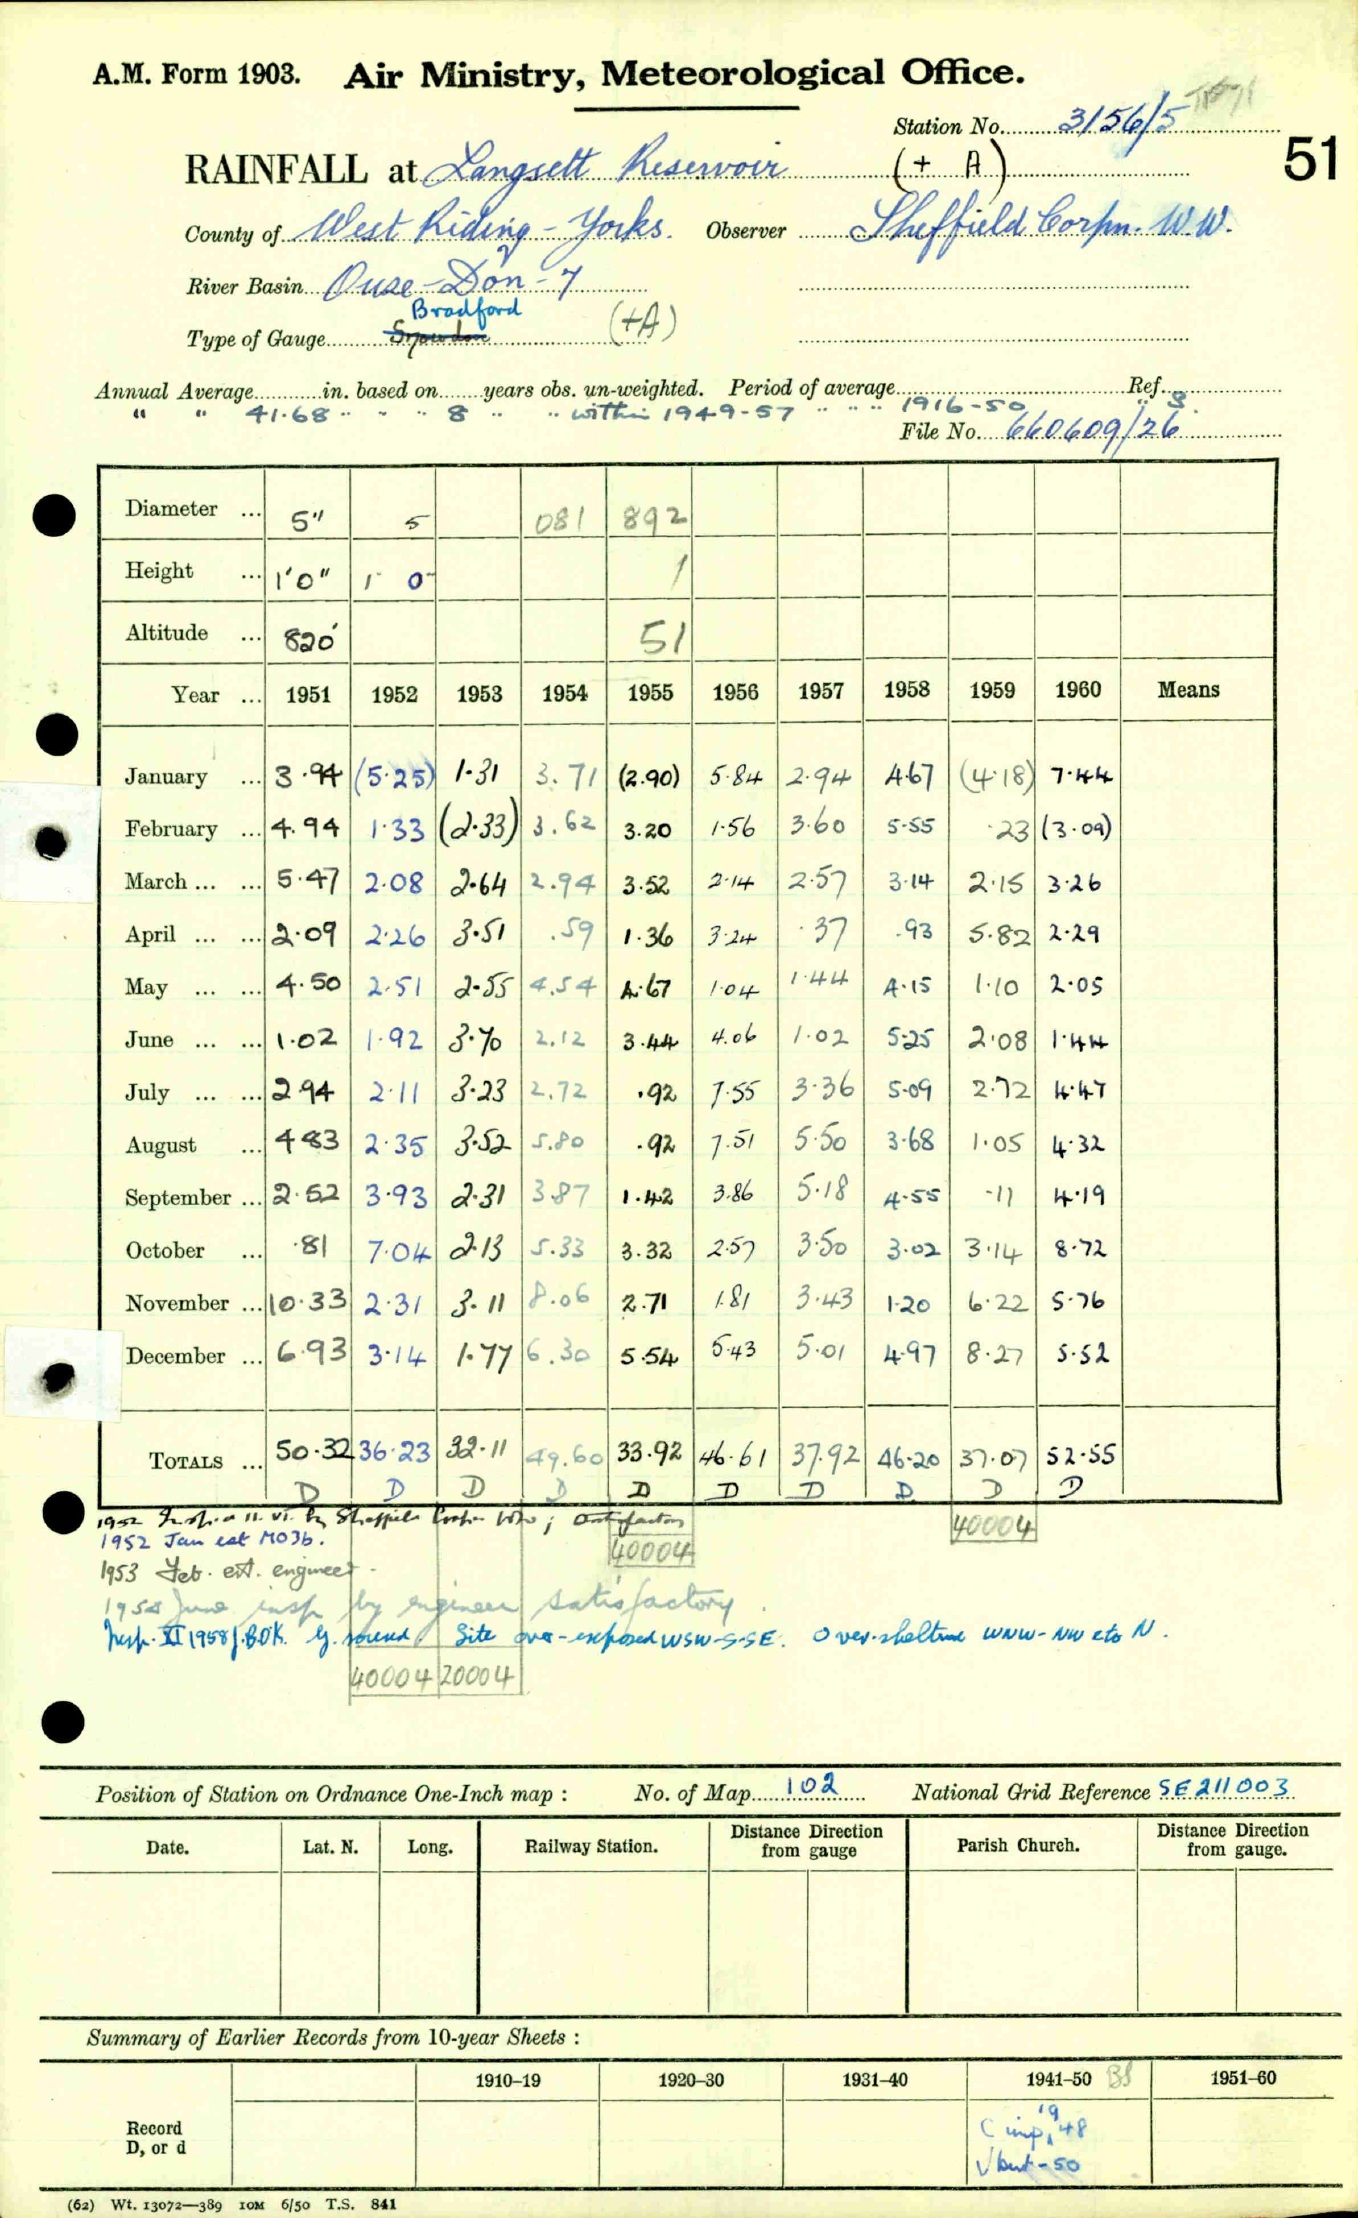 A.M. Form 1903. Air Ministry, Meteorological Office.
Station No. 3156/5
RAINFALL at Langsett Reservoir (+ A)
51
County of West Riding - Yorks. Observer Sheffield Corpn. W.W.
River Basin Ouse - Don - 7
Bradford
Type of Gauge Snowdon (+A)
Annual Average in. based on years obs. un-weighted. Period of average Ref.
" " 41.68 " " " 8 " " within 1949-57 " " " 1916-50 " 3.
File No. 660609/26
Diameter ... 5" 5 081 892
Height ... 1'0" 1 0 1
Altitude ... 820' 51
Year ... 1951 1952 1953 1954 1955 1956 1957 1958 1959 1960 Means
January ... 3.94 (5.25) 1.31 3.71 (2.90) 5.84 2.94 4.67 (4.18) 7.44
February ... 4.94 1.33 (2.33) 3.62 3.20 1.56 3.60 5.55 .23 (3.09)
March ... ... 5.47 2.08 2.64 2.94 3.52 2.14 2.57 3.14 2.15 3.26
April ... ... 2.09 2.26 3.51 .59 1.36 3.24 .37 .93 5.82 2.29
May ... ... 4.50 2.51 2.55 4.54 4.67 1.04 1.44 4.15 1.10 2.05
June ... ... 1.02 1.92 3.70 2.12 3.44 4.06 1.02 5.25 2.08 1.44
July ... ... 2.94 2.11 3.23 2.72 .92 7.55 3.36 5.09 2.72 4.47
August ... 4.83 2.35 3.52 5.80 .92 7.51 5.50 3.68 1.05 4.32
September ... 2.52 3.93 2.31 3.87 1.42 3.86 5.18 4.55 .11 4.19
October ... .81 7.04 2.13 5.33 3.32 2.57 3.50 3.02 3.14 8.72
November ... 10.33 2.31 3.11 8.06 2.71 1.81 3.43 1.20 6.22 5.76
December ... 6.93 3.14 1.77 6.30 5.54 5.43 5.01 4.97 8.27 5.52
TOTALS ... 50.32 36.23 32.11 49.60 33.92 46.61 37.92 46.20 37.07 52.55
D D D D D D D D D D
1952 11.VI. by Sheffield ; satisfactory
40004
1952 Jan est MO3b.
40004
1953 Feb. est. engineer.
1954 June insp by engineer satisfactory.
Insp. XI 1958 J.B.O'K. G. sound Site over-exposed WSW-S-SE. Over-sheltered WNW-NW etc N.
40004 20004
Position of Station on Ordnance One-Inch map : No. of Map 102 National Grid Reference SE 211003
Date. Lat. N. Long. Railway Station. Distance from gauge Direction Parish Church. Distance from gauge. Direction
Summary of Earlier Records from 10-year Sheets :
1910–19 1920–30 1931–40 1941–50 1951–60
Record D, or d
C imp, '48
19
but -50
(62) Wt. 13072—389 10M 6/50 T.S. 841